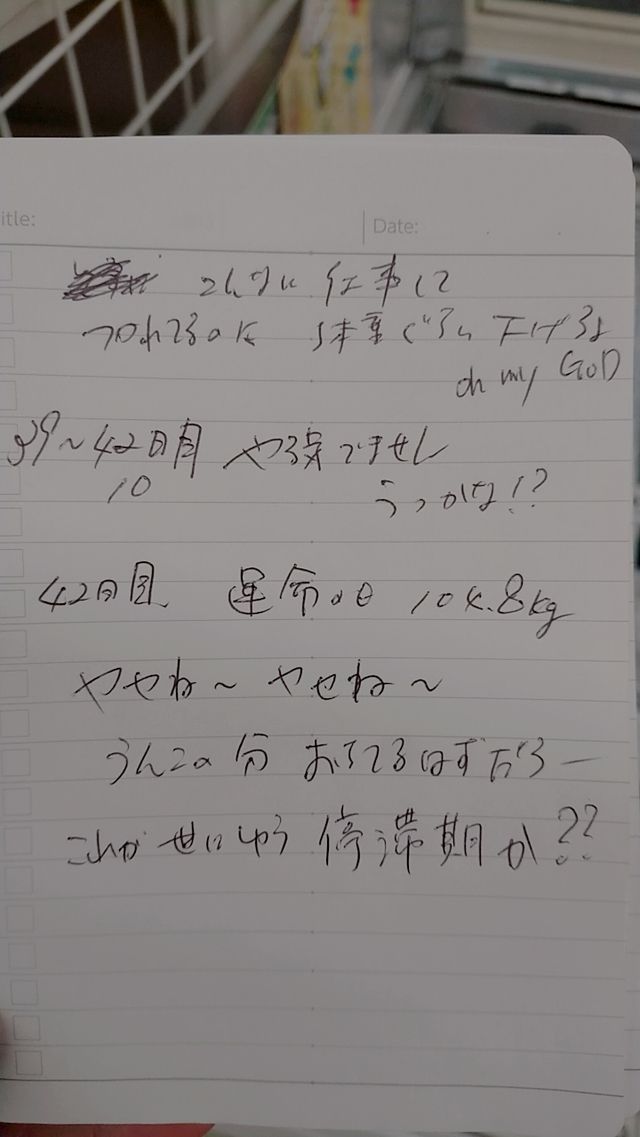 itle:
Date:
こんなに 仕事して
つかれてるのに 体重ぐらい 下げろよ
oh my GOD
39~42日目
10
うっかな!?
42日目 運命の日 104.8kg
やせね～ やせね～
うんこの分 おちてるはずだろー
これが せにゆう 停滞期か??